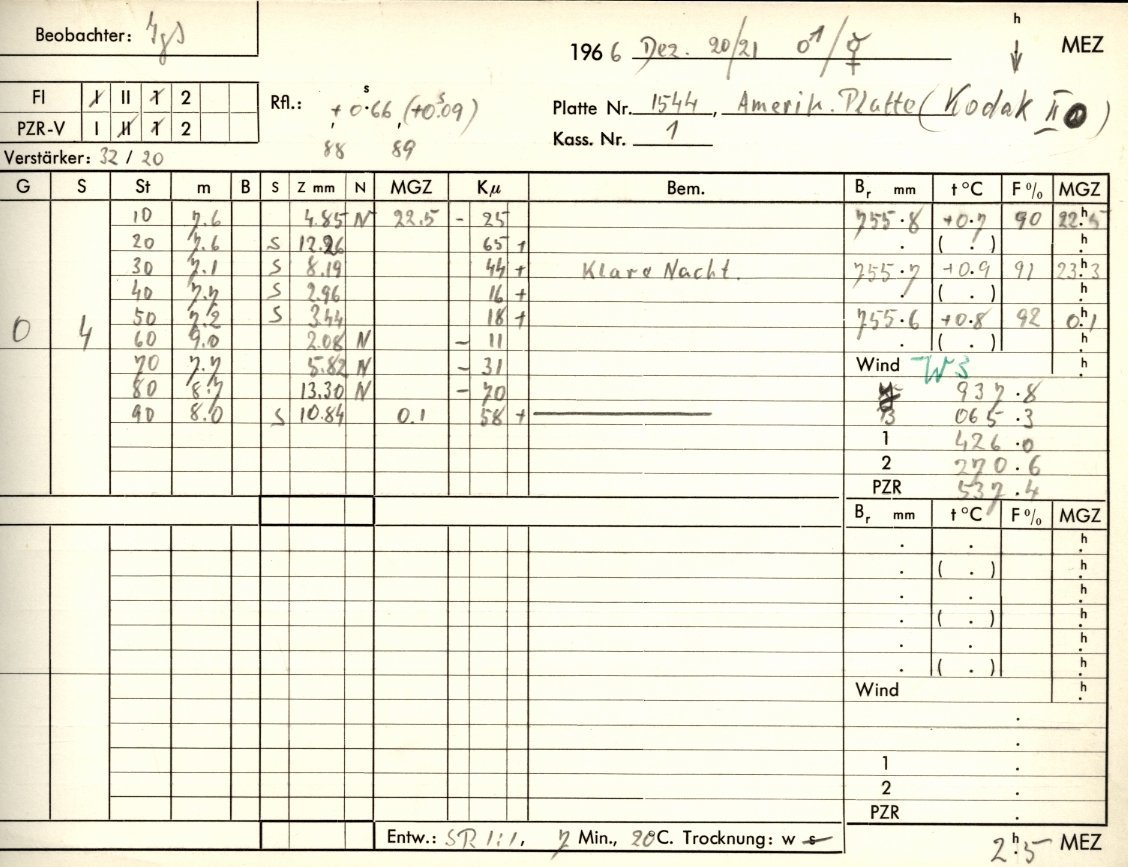 Beobachter:
1966 Dez. 20/21 ♂/♀ h MEZ
FI I II 1 2
PZR-V I II 1 2
Rfl.: +0ˢ.66 (+0ˢ.09)
88 89
Platte Nr. 1544, Amerik. Platte (Kodak II 0)
Kass. Nr. 1
Verstärker: 32 / 20
G S St m B S Z mm N MGZ Kμ Bem. Br mm t°C F% MGZ
0 4
10 7.6 4.85 N 22.5 - 25 755.8 +0.7 90 22ʰ.5
20 7.6 S 12.26 65 + . ( . ) h.
30 7.1 S 8.19 44 + Klare Nacht. 755.7 +0.9 91 23ʰ.3
40 7.7 S 2.96 16 + . ( . ) h.
50 7.2 S 3.44 18 + 755.6 +0.8 92 0ʰ.1
60 9.0 2.08 N - 11 . ( . ) h.
70 7.7 5.82 N - 31 Wind W3 h.
80 8.7 13.30 N - 70 937.8
90 8.0 S 10.84 0.1 58 + 13 065.3
1 426.0
2 270.6
PZR 537.4
Br mm t°C F% MGZ
. . h.
. ( . ) h.
. . h.
. ( . ) h.
. . h.
. ( . ) h.
Wind h.
.
.
1 .
2 .
PZR .
Entw.: SR 1:1, 7 Min., 20°C. Trocknung: w s
2ʰ.5 MEZ